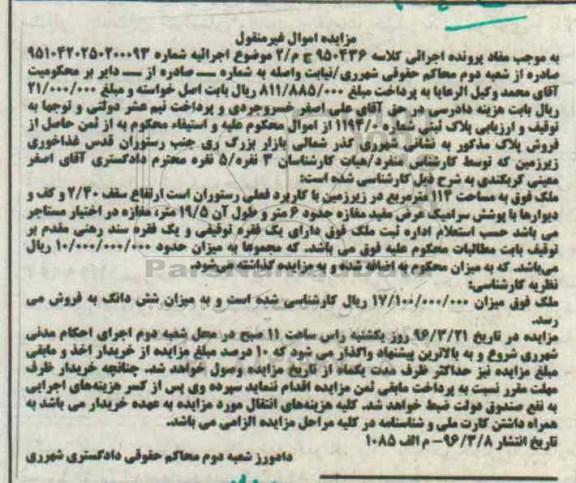 مزایده اموال غیرمنقول
به موجب مفاد پرونده اجرائی کلاسه ۹۵۰۴۳۶ ج م/۲ موضوع اجرائیه شماره ۹۵۱۰۴۲۰۲۵۰۲۰۰۰۹۳
صادره از شعبه دوم محاکم حقوقی شهرری/نیابت واصله به شماره ـــ صادره از ـــ دایر بر محکومیت
آقای محمد وکیل الرعایا به پرداخت مبلغ ۸۱۱/۸۸۵/۰۰۰ ریال بابت اصل خواسته و مبلغ ۲۱/۰۰۰/۰۰۰
ریال بابت هزینه دادرسی در حق آقای علی اصغر خسروجردی و پرداخت نیم عشر دولتی و توجها به
توقیف و ارزیابی پلاک ثبتی شماره ۱۱۹۳/۰ از اموال محکوم علیه و استیفاء محکوم به از ثمن حاصل از
فروش پلاک مذکور به نشانی شهرری گذر شمالی بازار بزرگ ری جنب رستوران قدس غذاخوری
زیرزمین که توسط کارشناس منفرد/هیات کارشناسان ۳ نفره/۵ نفره محترم دادگستری آقای اصغر
معینی کربکندی به شرح ذیل کارشناسی شده است:
ملک فوق به مساحت ۱۱۳ مترمربع در زیرزمین با کاربرد فعلی رستوران است ارتفاع سقف ۲/۴۰ و کف و
دیوارها با پوشش سرامیک عرض مفید مغازه حدود ۶ متر و طول آن ۱۹/۵ متر، مغازه در اختیار مستاجر
می باشد حسب استعلام اداره ثبت ملک فوق دارای یک فقره توقیفی و یک فقره سند رهنی مقدم بر
توقیف بابت مطالبات محکوم علیه فوق می باشد. که مجموعا به میزان حدود ۱۰/۰۰۰/۰۰۰/۰۰۰ ریال
می‌باشد. که به میزان محکوم به اضافه شده و به مزایده گذاشته می‌شود.
نظریه کارشناسی:
ملک فوق میزان ۱۷/۱۰۰/۰۰۰/۰۰۰ ریال کارشناسی شده است و به میزان شش دانگ به فروش می
رسد.
مزایده در تاریخ ۹۶/۳/۲۱ روز یکشنبه راس ساعت ۱۱ صبح در محل شعبه دوم اجرای احکام مدنی
شهرری شروع و به بالاترین پیشنهاد واگذار می شود که ۱۰ درصد مبلغ مزایده از خریدار اخذ و مابقی
مبلغ مزایده نیز حداکثر ظرف مدت یکماه از تاریخ مزایده وصول خواهد شد. چنانچه خریدار ظرف
مهلت مقرر نسبت به پرداخت مابقی ثمن مزایده اقدام ننماید سپرده وی پس از کسر هزینه‌های اجرایی
به نفع صندوق دولت ضبط خواهد شد. کلیه هزینه‌های انتقال مورد مزایده به عهده خریدار می باشد به
همراه داشتن کارت ملی و شناسنامه در کلیه مراحل مزایده الزامی می باشد.
تاریخ انتشار ۹۶/۳/۸- م الف ۱۰۸۵
دادورز شعبه دوم محاکم حقوقی دادگستری شهرری